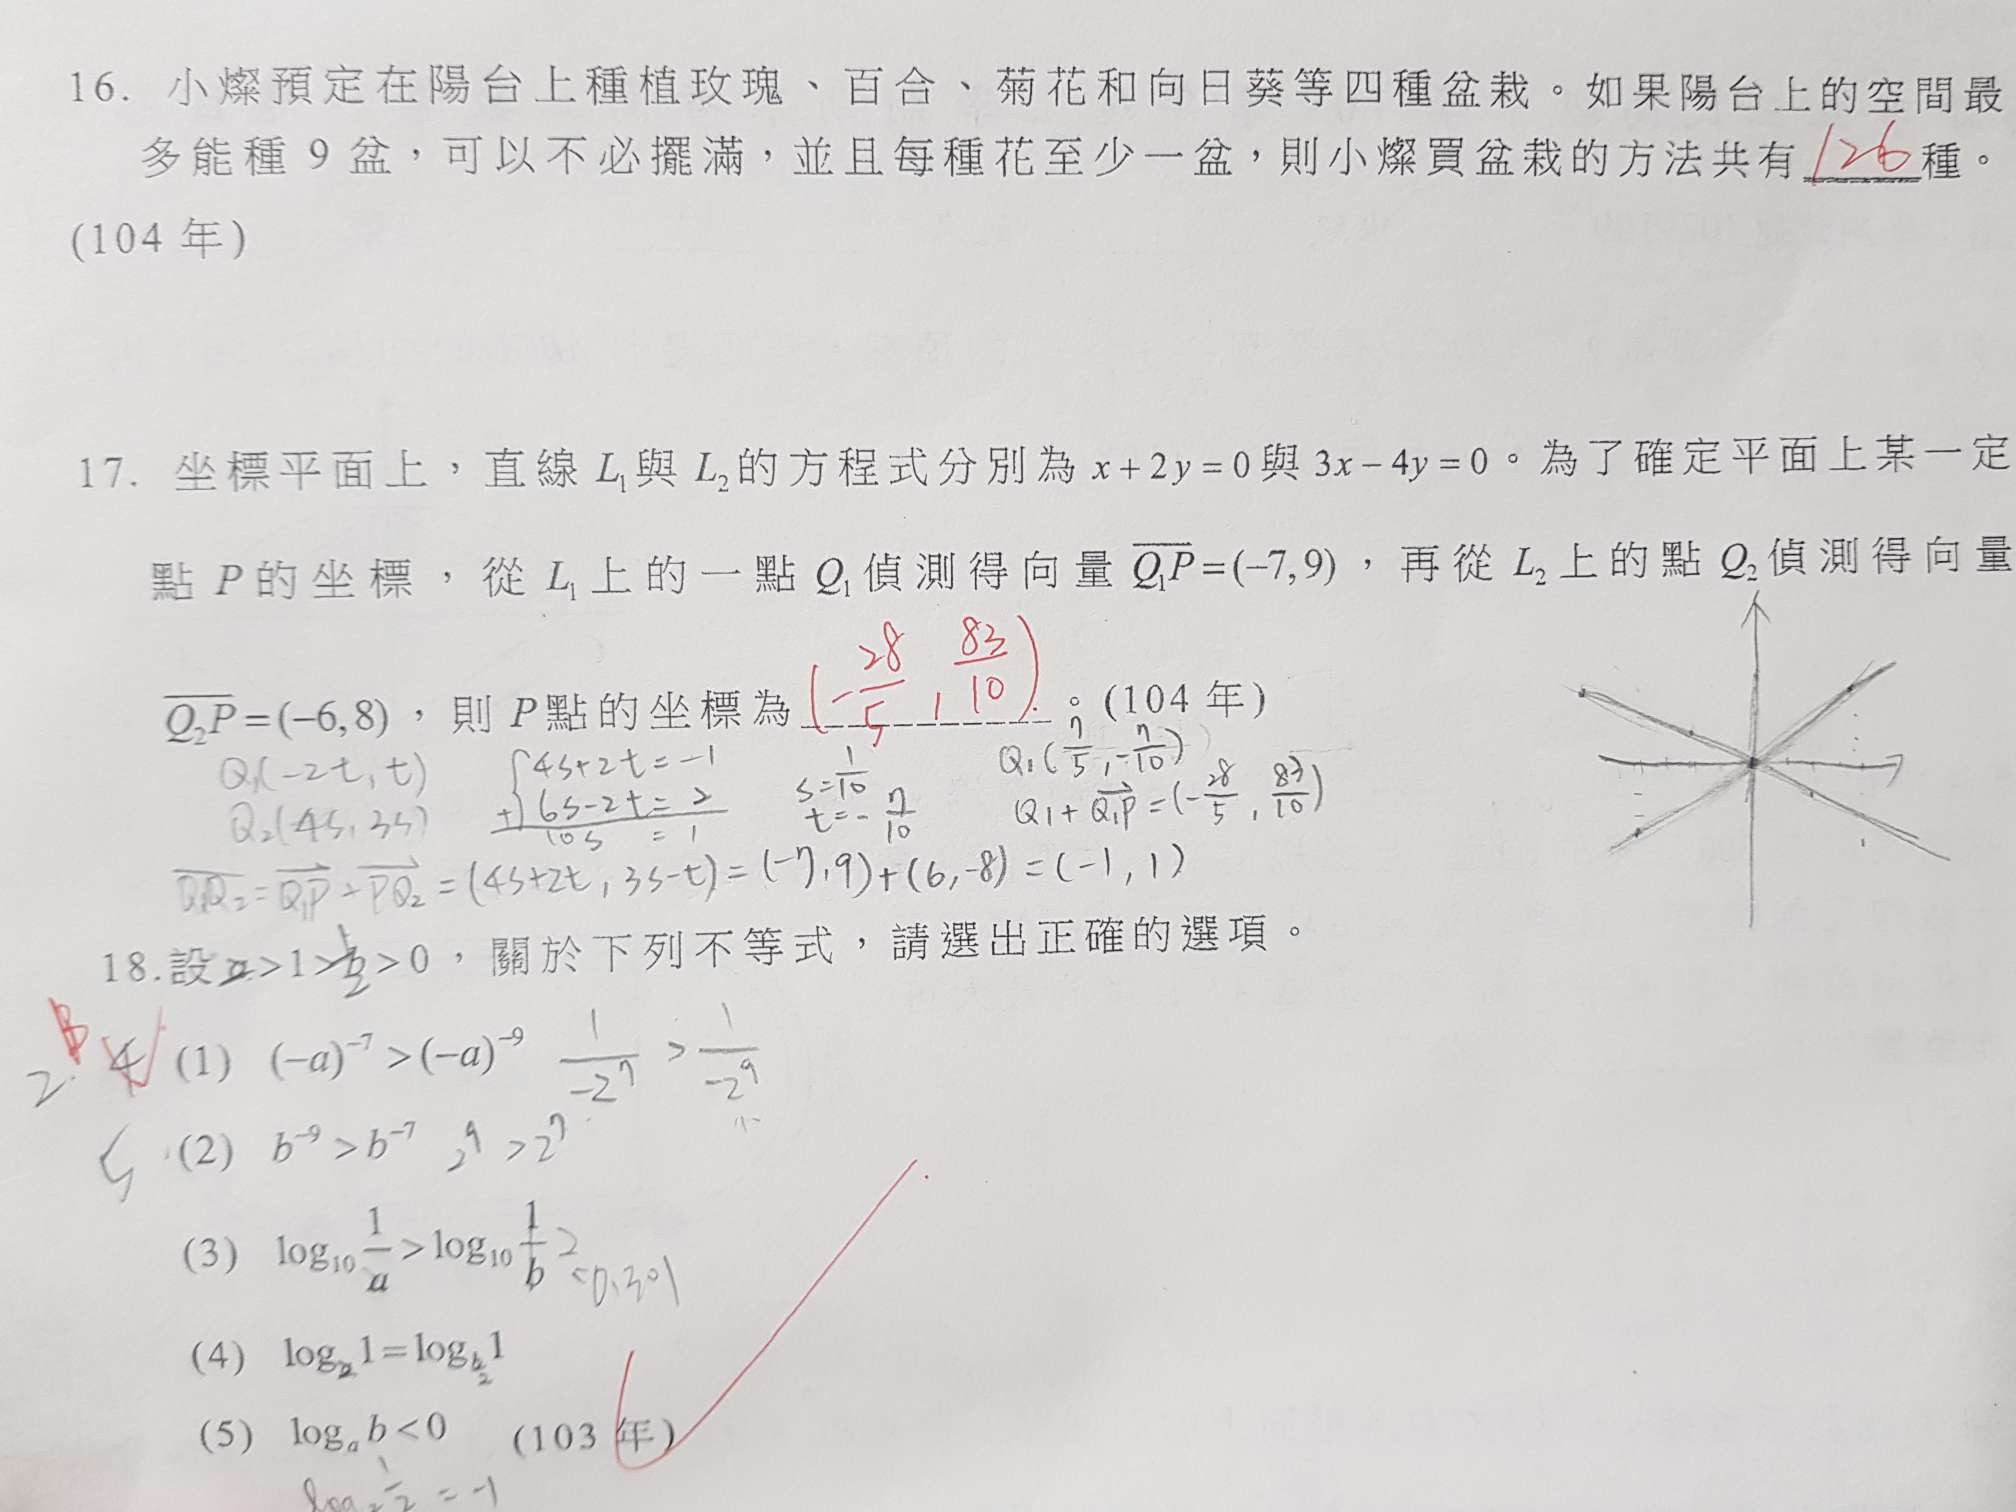 16. 小燦預定在陽台上種植玫瑰、百合、菊花和向日葵等四種盆栽。如果陽台上的空間最
多能種 9 盆，可以不必擺滿，並且每種花至少一盆，則小燦買盆栽的方法共有 126 種。
(104 年)
17. 坐標平面上，直線 L₁與 L₂的方程式分別為 x+2y=0與 3x-4y=0。為了確定平面上某一定
點 P 的坐標，從 L₁上的一點 Q₁偵測得向量 Q₁P=(-7,9)，再從 L₂上的點 Q₂偵測得向量
Q₂P=(-6,8)，則 P點的坐標為 (-28/5, 83/10)。(104 年)
Q₁(-2t, t) 4s+2t=-1 s=1/10 Q₁(7/5, -7/10)
Q₂(4s, 3s) +) 6s-2t=2 t=-7/10 Q₁+Q₁P=(-28/5, 83/10)
10s =1
Q₁Q₂=Q₁P+PQ₂=(4s+2t, 3s-t)=(-7,9)+(6,-8)=(-1,1)
18.設 a>1>b>0，關於下列不等式，請選出正確的選項。
2. 4 (1) (-a)⁻⁷>(-a)⁻⁹ 1/-2⁷ > 1/-2⁹
5 (2) b⁻⁹>b⁻⁷ 2⁹>2⁷
(3) log₁₀ 1/a > log₁₀ 1/b 2
-0.301
(4) logₐ1=log_b1
(5) logₐb<0 (103 年)
log₂ 1/2 =-1